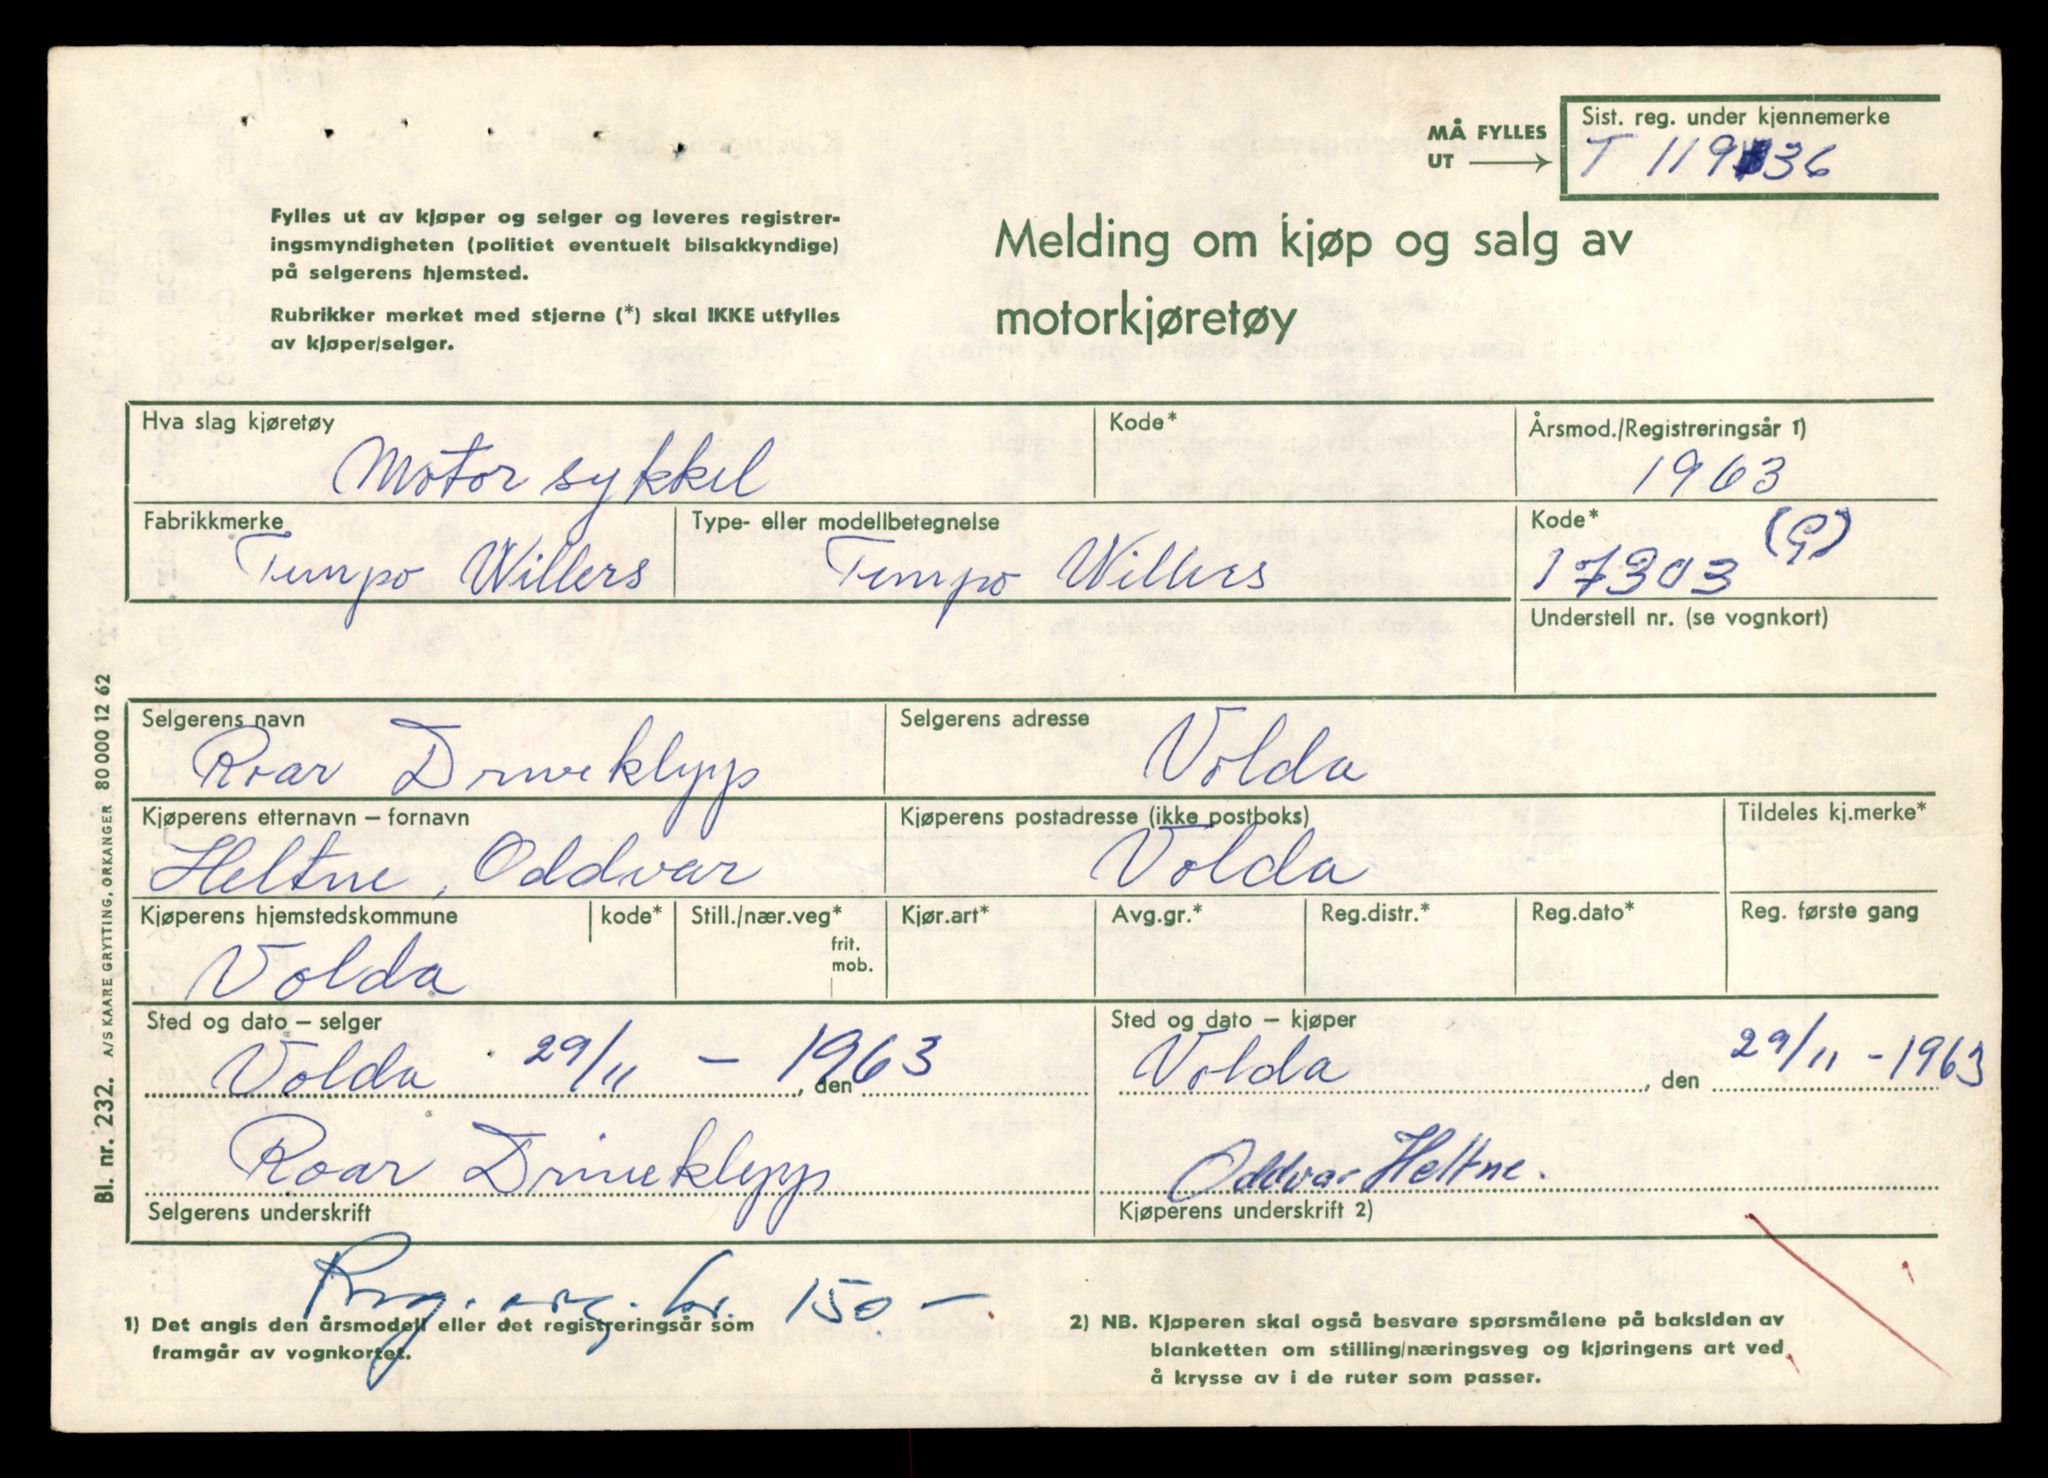 MÅ FYLLES
UT
Sist. reg. under kjennemerke
T 119 36
Fylles ut av kjøper og selger og leveres registrer-
ingsmyndigheten (politiet eventuelt bilsakkyndige)
på selgerens hjemsted.
Rubrikker merket med stjerne (*) skal IKKE utfylles
av kjøper/selger.
Melding om kjøp og salg av
motorkjøretøy
Hva slag kjøretøy
Motorsykkel
Kode*
Årsmod./Registreringsår 1)
1963
Fabrikkmerke
Tempo Willers
Type- eller modellbetegnelse
Tempo Willers
Kode*
17303 (G)
Understell nr. (se vognkort)
Selgerens navn
Roar Driveklepp
Selgerens adresse
Volda
Kjøperens etternavn – fornavn
Heltne, Oddvar
Kjøperens postadresse (ikke postboks)
Volda
Tildeles kj.merke*
Kjøperens hjemstedskommune
Volda
kode*
Still./nær.veg*
frit.
mob.
Kjør.art*
Avg.gr.*
Reg.distr.*
Reg.dato*
Reg. første gang
Sted og dato – selger
Volda 29/11 – 1963
, den
Sted og dato – kjøper
Volda , den 29/11 - 1963
Roar Driveklepp
Selgerens underskrift
Oddvar Heltne.
Kjøperens underskrift 2)
kr. 150 –
1) Det angis den årsmodell eller det registreringsår som
framgår av vognkortet.
2) NB. Kjøperen skal også besvare spørsmålene på baksiden av
blanketten om stilling/næringsveg og kjøringens art ved
å krysse av i de ruter som passer.
Bl. nr. 232. A/S KAARE GRYTTING, ORKANGER 80 000 12 62